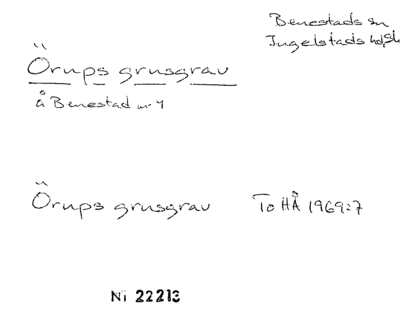 Benestads sn
Ingelstads hd, Sk
Örups grusgrav
å Benestad nr 4
Örups grusgrav To HÅ 1969:7
Ni 22213